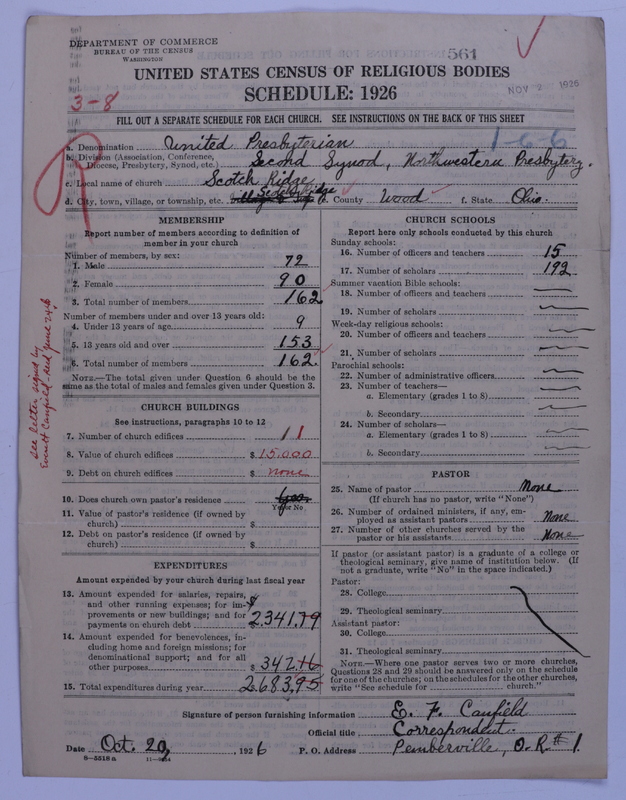 DEPARTMENT OF COMMERCE
BUREAU OF THE CENSUS
WASHINGTON
561
UNITED STATES CENSUS OF RELIGIOUS BODIES
SCHEDULE: 1926
NOV 2 1926
3-8
FILL OUT A SEPARATE SCHEDULE FOR EACH CHURCH. SEE INSTRUCTIONS ON THE BACK OF THIS SHEET
1-6-6
a. Denomination United Presbyterian
b. Division (Association, Conference, Diocese, Presbytery, Synod, etc.) Second Synod, Northwestern Presbytery.
c. Local name of church Scotch Ridge
d. City, town, village, or township, etc. Scotch Ridge e. County Wood f. State Ohio.
MEMBERSHIP
Report number of members according to definition of
member in your church
Number of members, by sex:
1. Male 72
2. Female 90
3. Total number of members 162
Number of members under and over 13 years old:
4. Under 13 years of age 9
5. 13 years old and over 153
6. Total number of members 162.
NOTE.—The total given under Question 6 should be the
same as the total of males and females given under Question 3.
See letter signed by
Everett Canfield recd June 24-26
CHURCH BUILDINGS
See instructions, paragraphs 10 to 12
7. Number of church edifices 1 1
8. Value of church edifices $ 15,000
9. Debt on church edifices $ none
10. Does church own pastor's residence yes
Yes or No
11. Value of pastor's residence (if owned by
church) $
12. Debt on pastor's residence (if owned by
church) $
EXPENDITURES
Amount expended by your church during last fiscal year
13. Amount expended for salaries, repairs,
and other running expenses; for im-
provements or new buildings; and for
payments on church debt $ 2341.79
14. Amount expended for benevolences, in-
cluding home and foreign missions; for
denominational support; and for all
other purposes $ 342.16
15. Total expenditures during year 2683.95
CHURCH SCHOOLS
Report here only schools conducted by this church
Sunday schools:
16. Number of officers and teachers 15
17. Number of scholars 192
Summer vacation Bible schools:
18. Number of officers and teachers
19. Number of scholars
Week-day religious schools:
20. Number of officers and teachers
21. Number of scholars
Parochial schools:
22. Number of administrative officers
23. Number of teachers—
a. Elementary (grades 1 to 8)
b. Secondary
24. Number of scholars—
a. Elementary (grades 1 to 8)
b. Secondary
PASTOR
25. Name of pastor None
(If church has no pastor, write "None")
26. Number of ordained ministers, if any, em-
ployed as assistant pastors None
27. Number of other churches served by the
pastor or his assistants None
If pastor (or assistant pastor) is a graduate of a college or
theological seminary, give name of institution below. (If
not a graduate, write "No" in the space indicated.)
Pastor:
28. College
29. Theological seminary
Assistant pastor:
30. College
31. Theological seminary
NOTE.—Where one pastor serves two or more churches,
Questions 28 and 29 should be answered only on the schedule
for one of the churches; on the schedules for the other churches,
write "See schedule for church."
Signature of person furnishing information E. F. Canfield
Official title Correspondent.
Date Oct. 20, 1926 P. O. Address Pemberville, O. R #1.
8—5518a